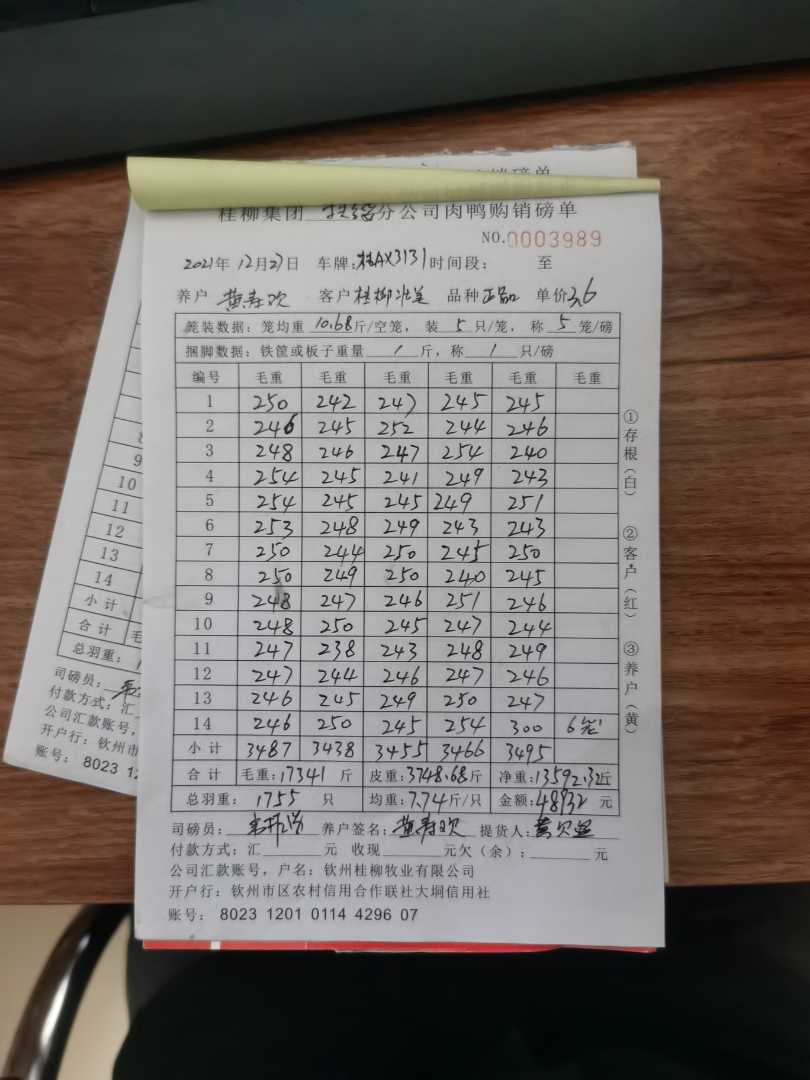 销磅单
桂柳集团 分公司肉鸭购销磅单
NO.0003989
2021年12月27日 车牌:桂AX3131 时间段: 至
养户 黄寿欢 客户 桂柳 品种 正品 单价 3.6
篼装数据:笼均重 10.68 斤/空笼, 装 5 只/笼, 称 5 笼/磅
捆脚数据:铁筐或板子重量 / 斤,称 / 只/磅
编号 毛重 毛重 毛重 毛重 毛重 毛重
1 250 242 247 245 245
2 246 245 252 244 246
3 248 246 247 254 240
4 254 245 241 249 243
5 254 245 245 249 251
6 253 248 249 243 243
7 250 244 250 245 250
8 250 249 250 240 245
9 248 247 246 251 246
10 248 250 245 247 244
11 247 238 243 248 249
12 247 244 246 247 246
13 246 245 249 250 247
14 246 250 245 254 300 6笼
小计 3487 3438 3455 3466 3495
合计 毛重:17341 斤 皮重:3748.68斤 净重:13592.32斤
总羽重: 1755 只 均重:7.74斤/只 金额:48932 元
司磅员: 养户签名:黄寿欢 提货人:
付款方式:汇 元 收现 元欠(余): 元
公司汇款账号,户名:钦州桂柳牧业有限公司
开户行:钦州市区农村信用合作联社大垌信用社
账号: 8023 1201 0114 4296 07
①存根(白) ②客户(红) ③养户(黄)
8
9
10
11
12
13
14
小计
合计 毛
总羽重:
司磅员:
付款方式:汇
公司汇款账号,
开户行:钦州市
账号: 8023 12